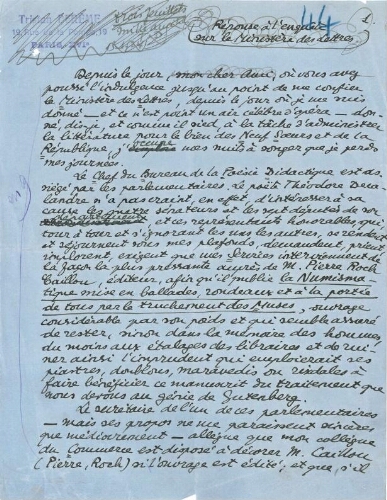 Tristan DERÈME
Réponse à l'enquête
sur le Ministère des Lettres
44
1.
Depuis le jour, mon cher ami, où vous avez
poussé l'indulgence jusqu'au point de me confier
le Ministère des Lettres, depuis le jour où je me suis
donné — et ce n'est point un air célèbre d'opéra — don-
né, dis-je, et comme il sied, à la tâche d'administrer
la littérature pour le bien des Neuf Sœurs et de la
République, j'occupe mes nuits à songer que je perds
mes journées.
Le Chef du Bureau de la Poésie Didactique est as-
siégé par les parlementaires. Le poète Théodore Deca-
landre n'a pas craint, en effet, d'intéresser à sa
cause les quatre sénateurs et les sept députés de son
et ces représentants honorables qui,
tour à tour et s'ignorant les uns les autres, se rendent
et séjournent sous mes plafonds, demandent, prient,
implorent, exigent que mes services interviennent de
la façon la plus pressante auprès de M. Pierre, Roch
Caillou, éditeur, afin qu'il publie la Numisma-
tique mise en ballades, rondeaux et à la portée
de tous par le truchement des Muses, ouvrage
considérable par son poids et qui semble assuré
de rester, sinon dans la mémoire des hommes,
du moins aux étalages des libraires et de rui-
ner ainsi l'imprudent qui emploierait ses
piastres, doublons, maravédis ou rixdales à
faire bénéficier ce manuscrit du traitement que
nous devons au génie de Gutenberg.
Le secrétaire de l'un de ces parlementaires
— mais ses propos ne me paraissent sincères
que médiocrement — allègue que mon collègue
du Commerce est disposé à décorer M. Caillou
(Pierre, Roch) si l'ouvrage est édité ; et que, s'il